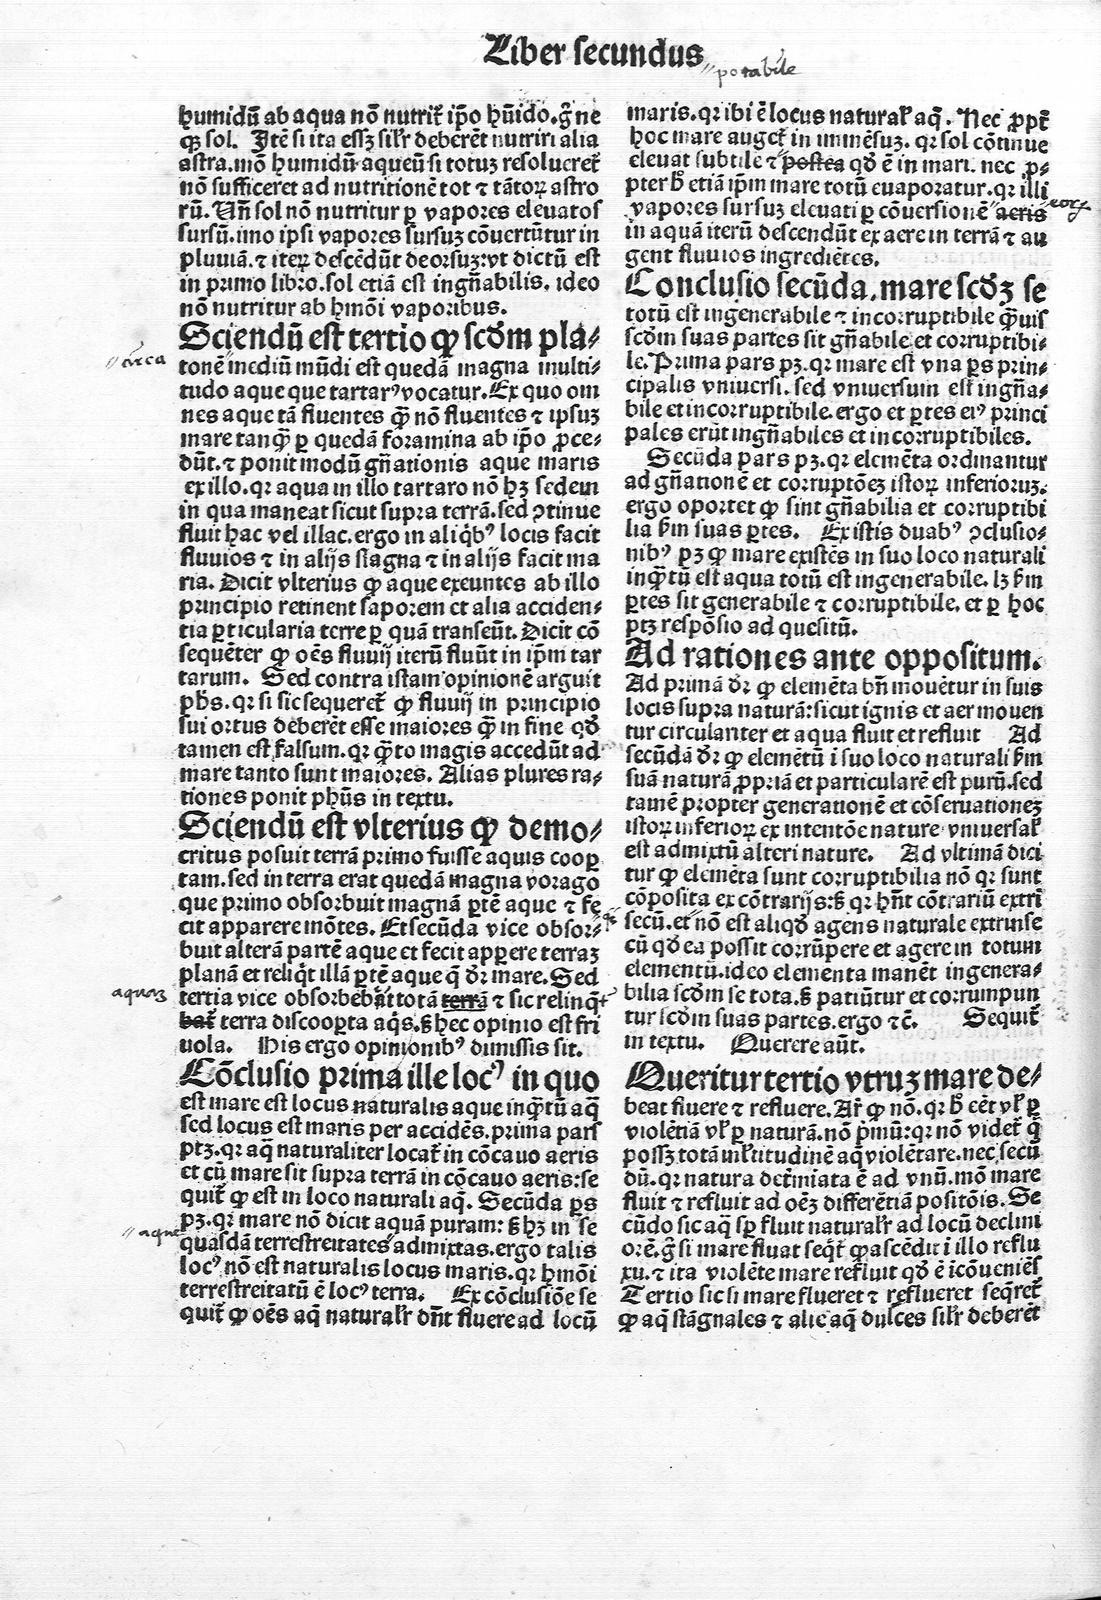 Liber secundus
potabile
humidũ ab aqua nõ nutrit̃ ip̃o hũido. g̃ ne
qꝫ sol. Itẽ si ita essꝫ sil̃r deberẽt nutriri alia
astra. mõ humidũ aqueũ si totuꝫ resolueret̃
nõ sufficeret ad nutritionẽ tot ⁊ tãtoꝝ astro
rũ. Vñ sol nõ nutritur ꝑ vapores eleuatos
sursũ. imo ipsi vapores sursuꝫ cõuertũtur in
pluuiã. ⁊ iteꝝ descẽdũt deorsuꝫ: vt dictũ est
in primo libro. sol etiã est ingñabilis. ideo
nõ nutritur ab hmõi vaporibus.
Sciendũ est tertio ꝙ scðm pla⸗
circa
tonẽ mediũ mũdi est quedã magna multi⸗
tudo aque que tartarꝰ vocatur. Ex quo om
nes aque tã fluentes q̃ȝ nõ fluentes ⁊ ipsuꝫ
mare tanq̃ȝ ꝑ quedã foramina ab ip̃o ꝓce⸗
dũt. ⁊ ponit modũ gñationis aque maris
ex illo. qꝛ aqua in illo tartaro nõ hꝫ sedem
in qua maneat sicut supra terrã. sed ↄtinue
fluit hac vel illac. ergo in aliq̃bꝰ locis facit
fluuios ⁊ in alijs stagna ⁊ in alijs facit ma
ria. Dicit vlterius ꝙ aque exeuntes ab illo
principio retinent saporem et alia acciden⸗
tia ꝑticularia terre ꝑ quã transeũt. Dicit cõ
sequẽter ꝙ oẽs fluuij iterũ fluũt in ip̃m tar
tarum. Sed contra istam opinionẽ arguit
ph̃s. qꝛ si sic sequeret̃ ꝙ fluuij in principio
sui ortus deberẽt esse maiores q̃ȝ in fine qð
tamen est falsum. qꝛ q̃ȝto magis accedũt ad
mare tanto sunt maiores. Alias plures ra⸗
tiones ponit phũs in textu.
Sciendũ est vlterius ꝙ demo⸗
critus posuit terrã primo fuisse aquis cooꝑ
tam. sed in terra erat quedã magna vorago
que primo obsorbuit magnã ꝑtẽ aque ⁊ fe
cit apparere mõtes. Et secũda vice obsor⸗
buit alterã partẽ aque et fecit apꝑere terraꝫ
planã et reliq̃t illã ꝑtẽ aque q̃ ðr mare. Sed
aquaꝫ
tertia vice obsorbebãt totã terrã ⁊ sic relinq̃t
bat̃ terra discooꝑta aq̃s. ꝭ hec opinio est fri
uola. His ergo opinionibꝰ dimissis sit.
Cõclusio prima ille locꝰ in quo
est mare est locus naturalis aque inq̃ȝtũ aq̃
sed locus est maris per accidẽs. prima pars
ptꝫ. qꝛ aq̃ naturaliter locat̃ in cõcauo aeris
et cũ mare sit supra terrã in cõcauo aeris: se
quit̃ ꝙ est in loco naturali aq̃. Secũda ꝑs
pꝫ. qꝛ mare nõ dicit aquã puram: ꝭ hꝫ in se
aque
quasdã terrestreitates admixtas. ergo talis
locꝰ nõ est naturalis locus maris. qꝛ hmõi
terrestreitatũ ẽ locꝰ terra. Ex cõclusiõe se
quit̃ ꝙ oẽs aq̃ natural̃r dñt fluere ad locũ
maris. qꝛ ibi ẽ locus natural̃ aq̃. Nec ꝓpt̃
hoc mare auget̃ in immẽsuꝫ. qꝛ sol cõtinue
eleuat subtile ⁊ postea qð ẽ in mari. nec ꝓ⸗
pter ħ etiã ip̃m mare totũ euaporatur. qꝛ illi
vapores sursuꝫ eleuati ꝑ cõuersionẽ aeris
eoꝝ
in aquã iterũ descendũt ex aere in terrã ⁊ au
gent fluuios ingrediẽtes.
Conclusio secũda. mare scðꝫ se
totũ est ingenerabile ⁊ incorruptibile q̃ȝuis
scðm suas partes sit gñabile et corruptibi⸗
le. Prima pars pꝫ. qꝛ mare est vna ꝑs prin⸗
cipalis vniuersi. sed vniuersum est ingña⸗
bile et incorruptibile. ergo et ꝑtes eiꝰ princi
pales erũt ingñabiles et incorruptibiles.
Secũda pars pꝫ. qꝛ elemẽta ordinantur
ad gñationẽ et corruptõeꝫ istoꝝ inferioruꝫ.
ergo oportet ꝙ sint gñabilia et corruptibi
lia ẜm suas ꝑtes. Ex istis duabꝰ ↄclusio⸗
nibꝰ pꝫ ꝙ mare existẽs in suo loco naturali
inq̃ȝtũ est aqua totũ est ingenerabile. lꝫ ẜm
ꝑtes sit generabile ⁊ corruptibile. et ꝑ hoc
ptꝫ respõsio ad quesitũ.
Ad rationes ante oppositum.
Ad primã ðr ꝙ elemẽta bñ mouẽtur in suis
locis supra naturã: sicut ignis et aer mouen
tur circulariter et aqua fluit et refluit Ad
secũdã ðr ꝙ elemẽtũ ĩ suo loco naturali ẜm
suã naturã ꝓpriã et particularẽ est purũ. sed
tamẽ propter generationẽ et cõseruationeꝫ
istoꝝ inferioꝝ ex intentõe nature vniuersal̃
est admixtũ alteri nature. Ad vltimã dici
tur ꝙ elemẽta sunt corruptibilia nõ qꝛ sunt
cõposita ex cõtrarijs: ꝭ qꝛ hñt cõtrariũ extri
secũ. et nõ est aliqð agens naturale extrinse
cũ qð ea possit corrũpere et agere in totum
elementũ. ideo elementa manẽt ingenera⸗
bilia scðm se tota. ꝭ patiũtur et corrumpun
tur scðm suas partes. ergo ⁊c̃. Sequit̃
in textu. Querere aũt.
Queritur tertio vtruꝫ mare de⸗
beat fluere ⁊ refluere. Ar̃ ꝙ nõ. qꝛ ħ eẽt vl̃ ꝑ
violẽtiã vl̃ ꝑ naturã. nõ p̃mũ: qꝛ nõ videt̃ q̃
possꝫ totã ml̃titudinẽ aq̃ violẽtare. nec secũ
dũ. qꝛ natura det̃miata ẽ ad vnũ. mõ mare
fluit ⁊ refluit ad oẽꝫ differẽtiã positõis. Se
cũdo sic aq̃ sp̃ fluit natural̃r ad locũ decliui
orẽ. g̃ si mare fluat seq̃t̃ ꝙ ascẽdit ĩ illo reflu
xu. ⁊ ita violẽte mare refluit qð ẽ ĩcõueniẽs
Tertio sic si mare flueret ⁊ reflueret seq̃ret̃
ꝙ aq̃ stãgnales ⁊ alie aq̃ dulces sil̃r deberẽt